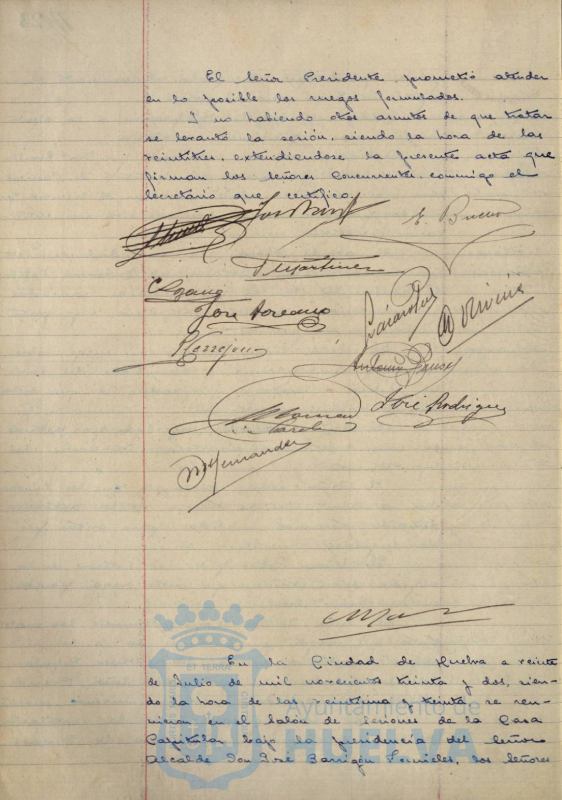 El Señor Presidente prometió atender
en lo posible los ruegos formulados.
Y no habiendo otros asuntos de que tratar
se levantó la sesión, siendo la hora de las
veintitres, extendiendose la presente acta que
firman los señores concurrentes, conmigo el
Secretario que certifico.
E. Bueno
P Martinez
José
Antonio
José Rodriguez
Hernandez
En la Ciudad de Huelva a veinte
de Julio de mil novecientos treinta y dos, sien-
do la hora de las veintiuna y treinta se reu-
nieron en el salón de Sesiones de la Casa
Capitular bajo la presidencia del Señor
Alcalde Don José Barrigón Fornieles, los Señores
Ayuntamiento de
HUELVA